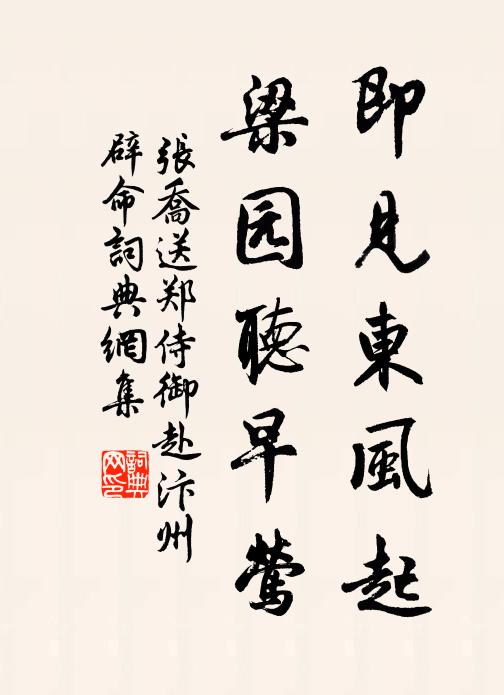 即見東風起
梁园聽早鶯
張喬送郑侍御赴汴州
辟命詞典網集
詞典网印